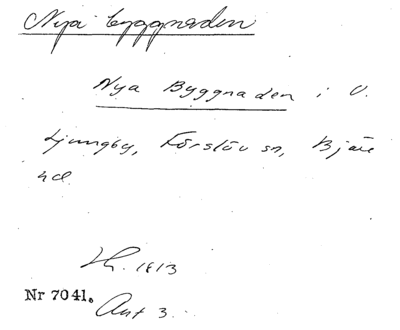 Nya byggnaden
Nya Byggnaden i V.
Ljungby, Förslöv sn, Bjäre
hd
Lh. 1813
Nr 7041.
Ant 3.